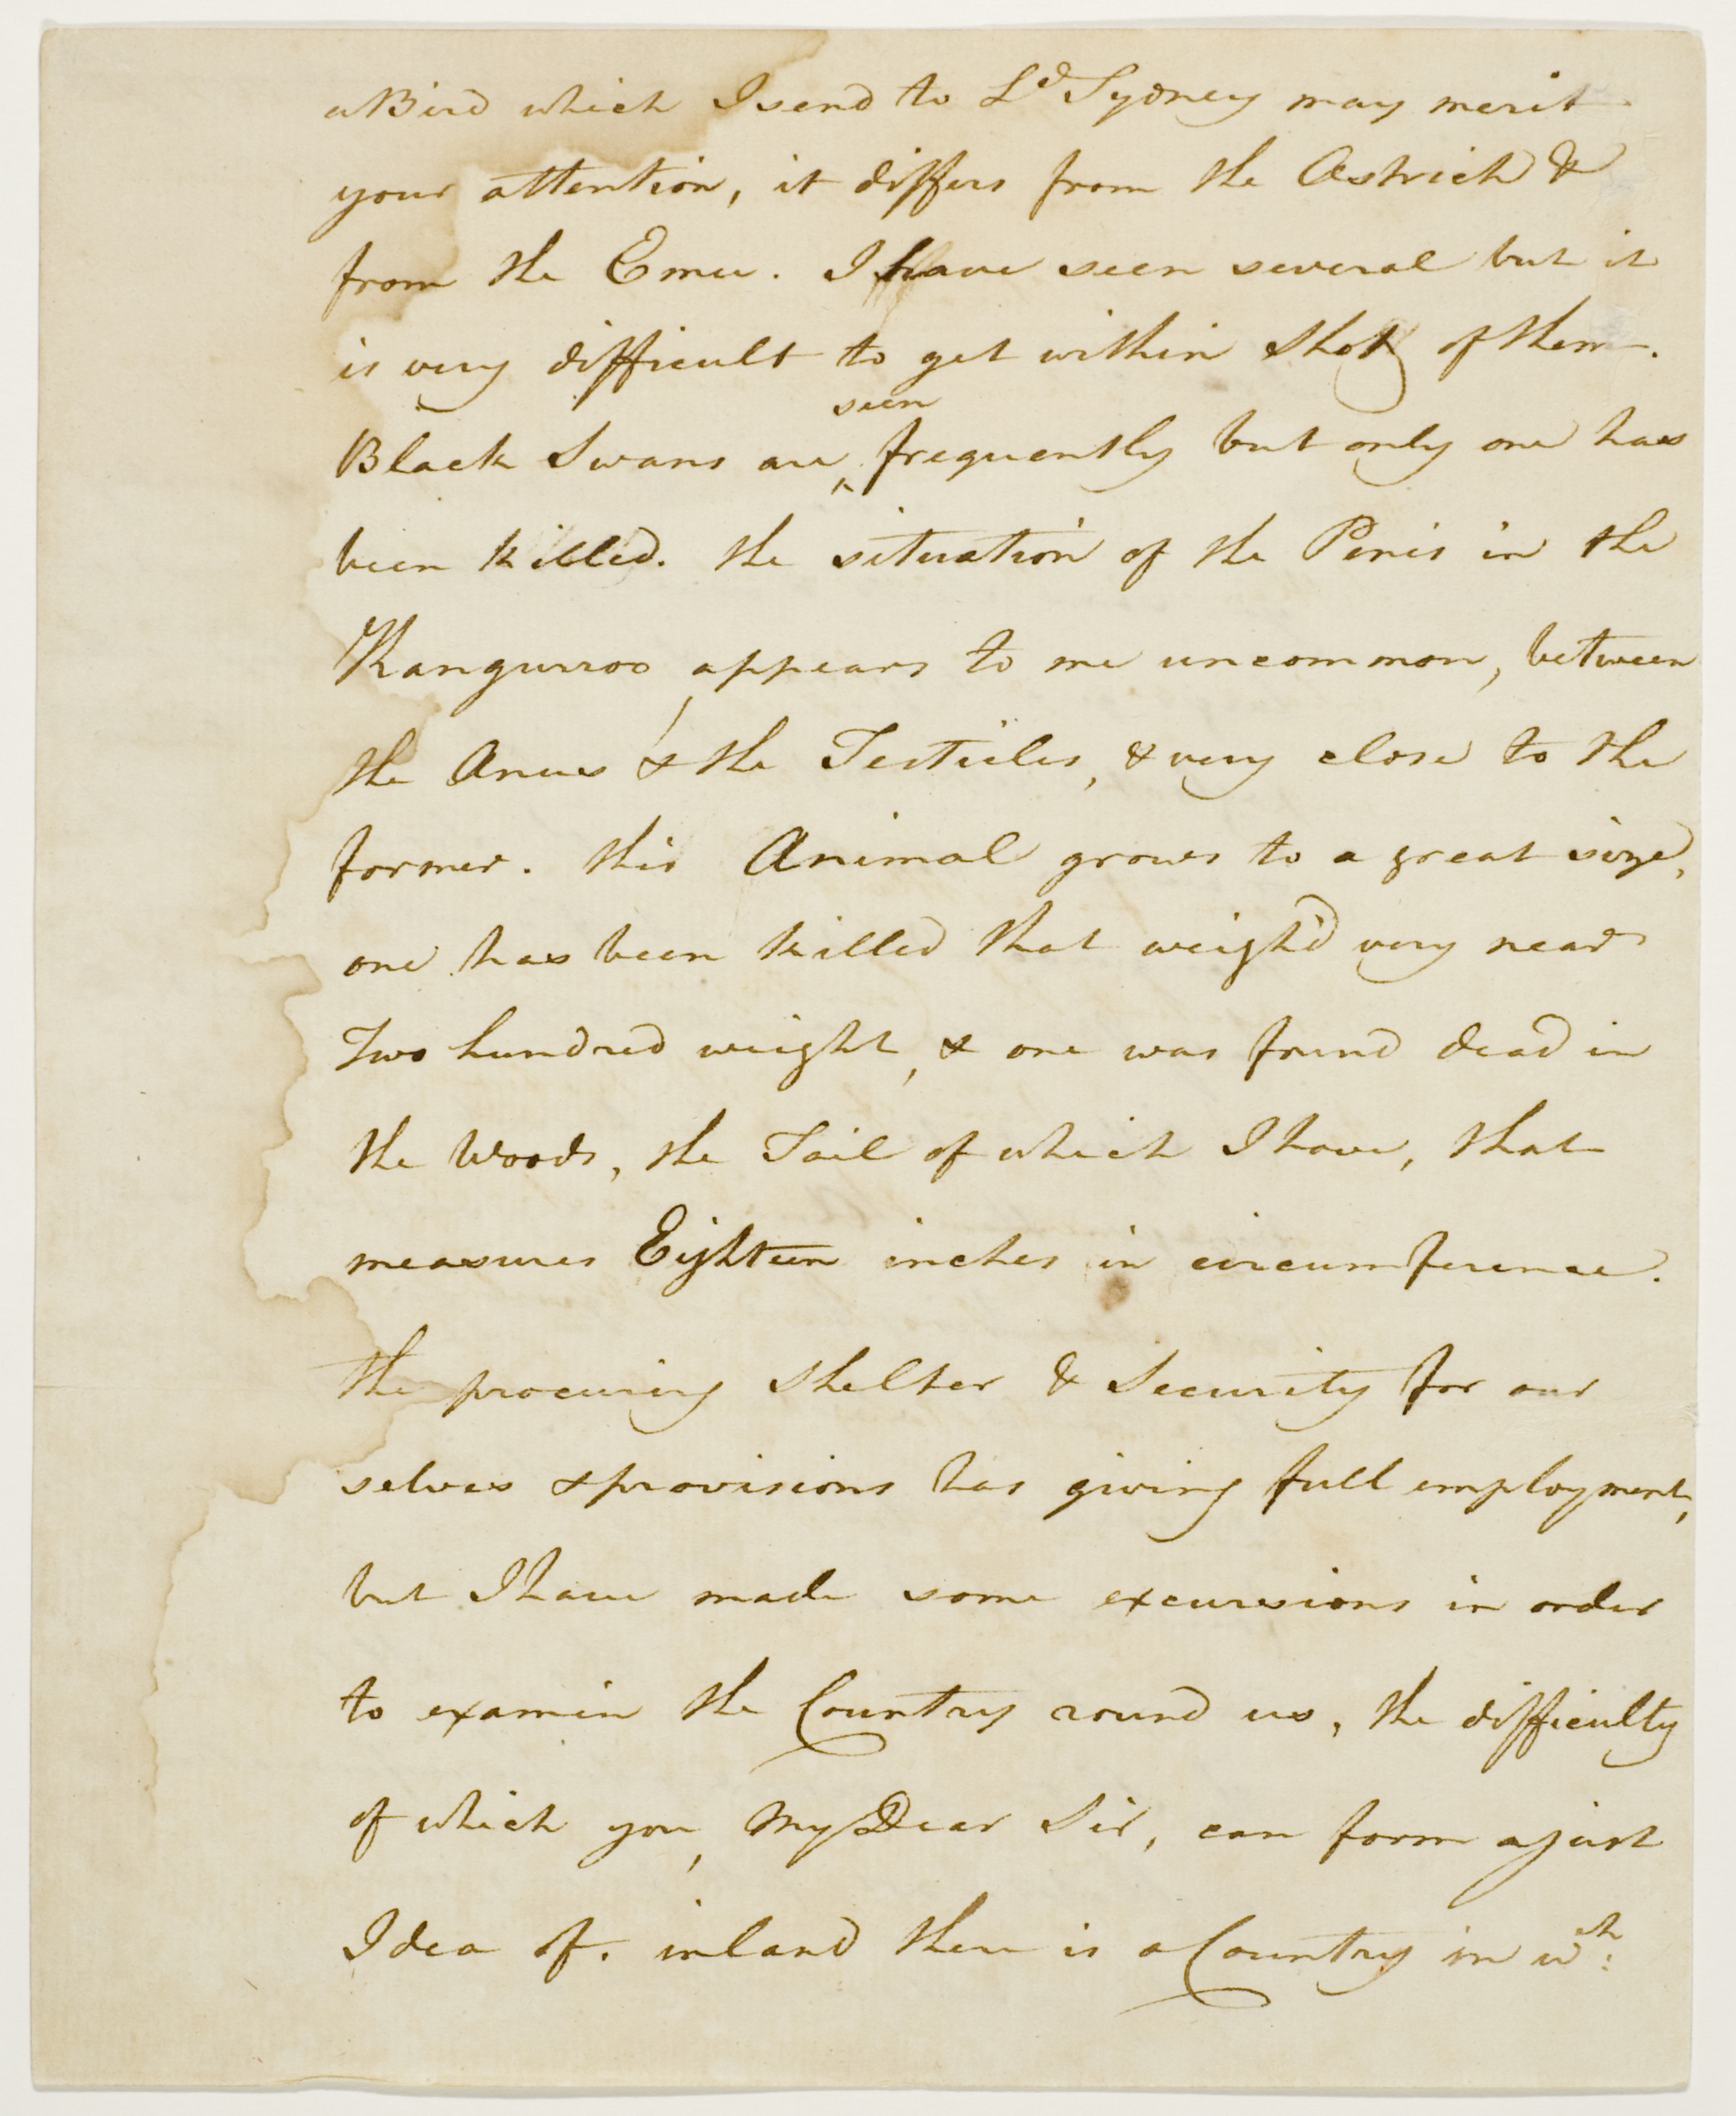 a Bird which I send to Ld Sydney may merit
your attention, it differs from the Astrich &
from the Emu. I have seen several but it
is very difficult to get within shot of them.
seen
Black Swans are ^ frequently but only one has
been killed. the situation of the Penis in the
Kangurroo appears to me uncommon, between
the Anus & the Testicles, & very close to the
former. this Animal grows to a great size,
one has been killed that weigh'd very near
Two hundred weight, & one was found dead in
the Woods, the Tail of which I have, that
measures Eighteen inches in circumference.
the procuring shelter & Security for our
selves & provisions has giving full employment,
but I have made some excursions in order
to examin the Country round us, the difficulty
of which you, My Dear Sir, can form a just
Idea of. inland there is a Country in wh: